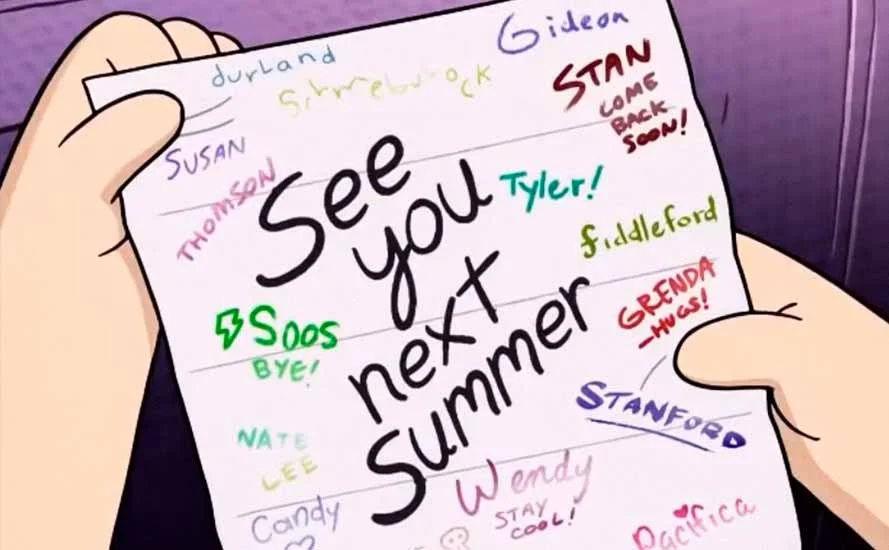 Gideon
durland
STAN
COME
BACK
SOON!
SUSAN
THOMSON
See
you
next
summer
Tyler!
fiddleford
GRENDA
-HUGS!
SOOS
BYE!
STANFORD
NATE
LEE
Wendy
STAY
COOL!
Candy
Pacifica